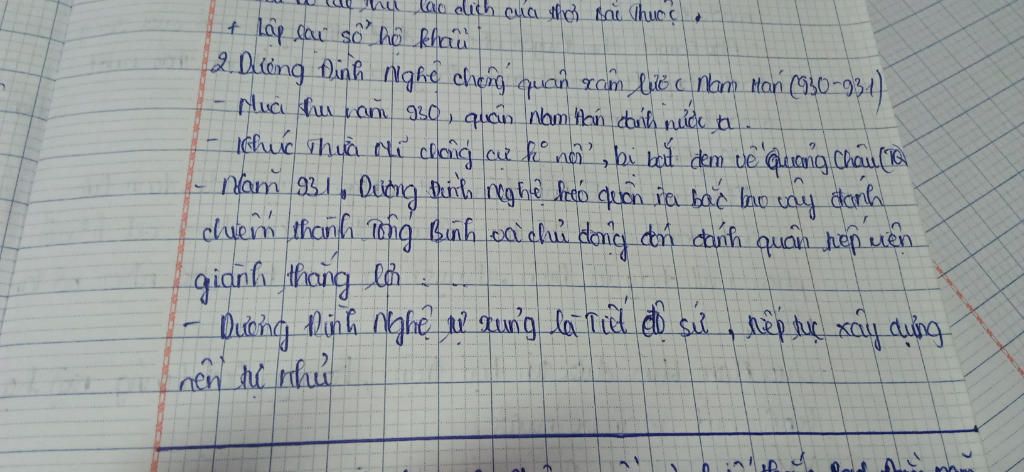 lao dịch của thời Bắc thuộc.
+ Lập lại sổ hộ khẩu
2. Dương Đình Nghệ chống quân xâm lược Nam Hán (930-931)
- Mùa thu năm 930, quân Nam Hán đánh nước ta.
- Khúc Thừa Mĩ chống cự k° nổi, bị bắt đem về Quảng Châu (TQ)
- Năm 931, Dương Đình Nghệ kéo quân ra bắc bao vây đánh
chiếm thành Tống Bình và chủ động đón đánh quân tiếp viện
giành thắng lợi.
- Dương Đình Nghệ tự xưng là Tiết độ sứ, tiếp tục xây dựng
nền tự chủ